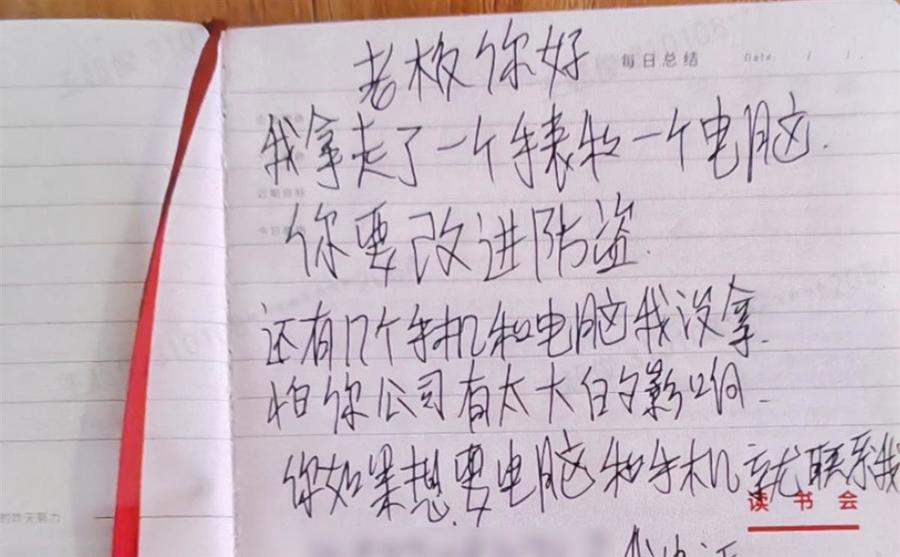 老板你好
每日总结 Date / /
我拿走了一个手表和一个电脑.
近期目标
你要改进防盗.
还有几个手机和电脑我没拿.
怕你公司有太大的影响.
你如果想要电脑和手机就联系我
读书会
的昨天努力